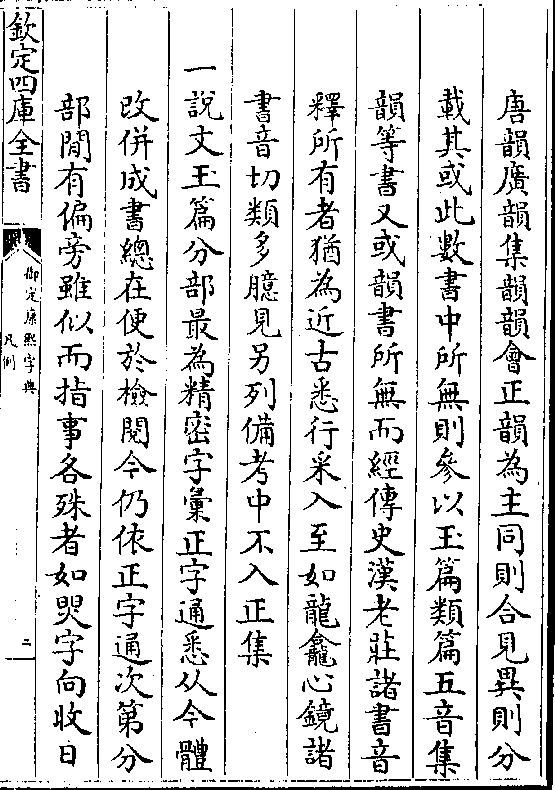 唐韻廣韻集韻韻會正韻為主同則合見異則分
載其或此數書中所無則參以玉篇類篇五音集
韻等書又或韻書所無而經傳史漢老莊諸書音
釋所有者猶為近古悉行采入至如龍龕心鏡諸
書音切類多臆見另列備考中不入正集
一說文玉篇分部最為精密字彙正字通悉从今體
改併成書總在便於檢閱今仍依正字通次第分
部閒有偏旁雖似而指事各殊者如煚字向收日
欽定四庫全書
御定康熙字典
凡例
二